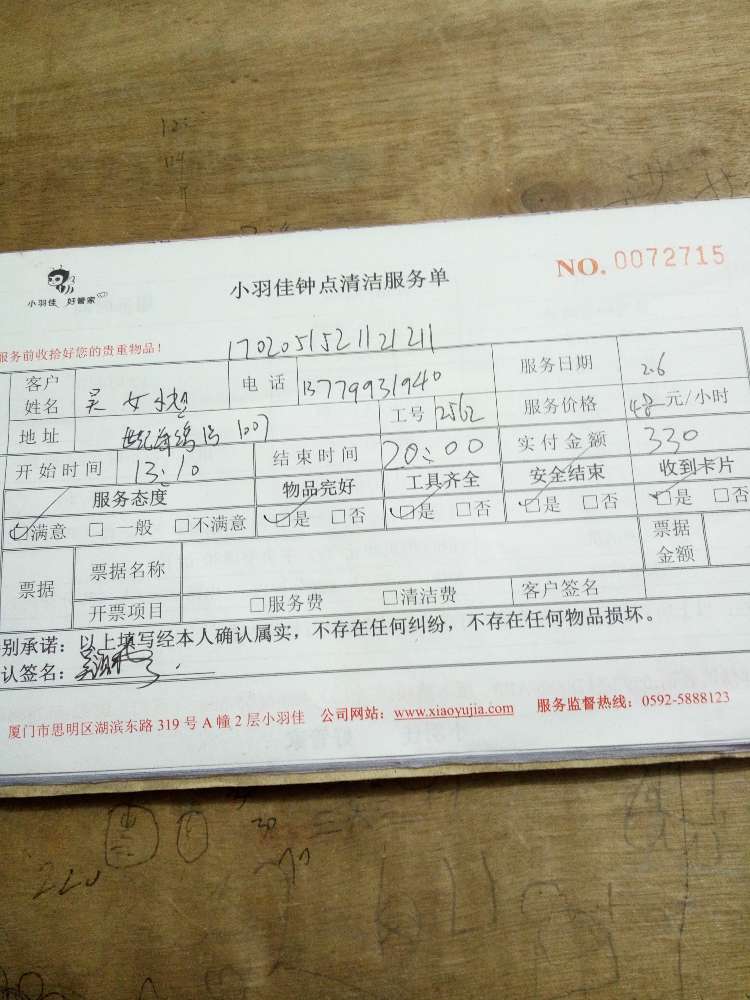 小羽佳 好管家
小羽佳钟点清洁服务单
NO. 0072715
服务前收拾好您的贵重物品!
170205152112 1211
客户姓名 吴女士 电话 13779931940 服务日期 2.6
地址 1007 工号 2562 服务价格 48元/小时
开始时间 13:10 结束时间 20:00 实付金额 330
服务态度 物品完好 工具齐全 安全结束 收到卡片
☑满意 □一般 □不满意 ☑是 □否 ☑是 □否 ☑是 □否 ☑是 □否
票据 票据名称 票据金额
开票项目 □服务费 □清洁费 客户签名
别承诺:以上填写经本人确认属实,不存在任何纠纷,不存在任何物品损坏。
认签名:
厦门市思明区湖滨东路 319 号 A 幢 2 层小羽佳 公司网站:www.xiaoyujia.com 服务监督热线:0592-5888123